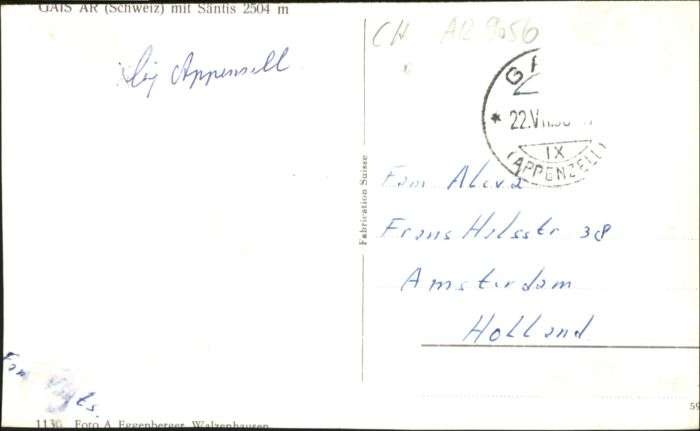 GAIS AR (Schweiz) mit Säntis 2504 m
CH AR 9056
bij Appenzell
GA
* 22.VII.
IX
(APPENZELL)
Fabrication Suisse
Fam
Frans Halsstr 38
Amsterdam
Holland
Fam
59
1130 Foto A Eggenberger, Walzenhausen